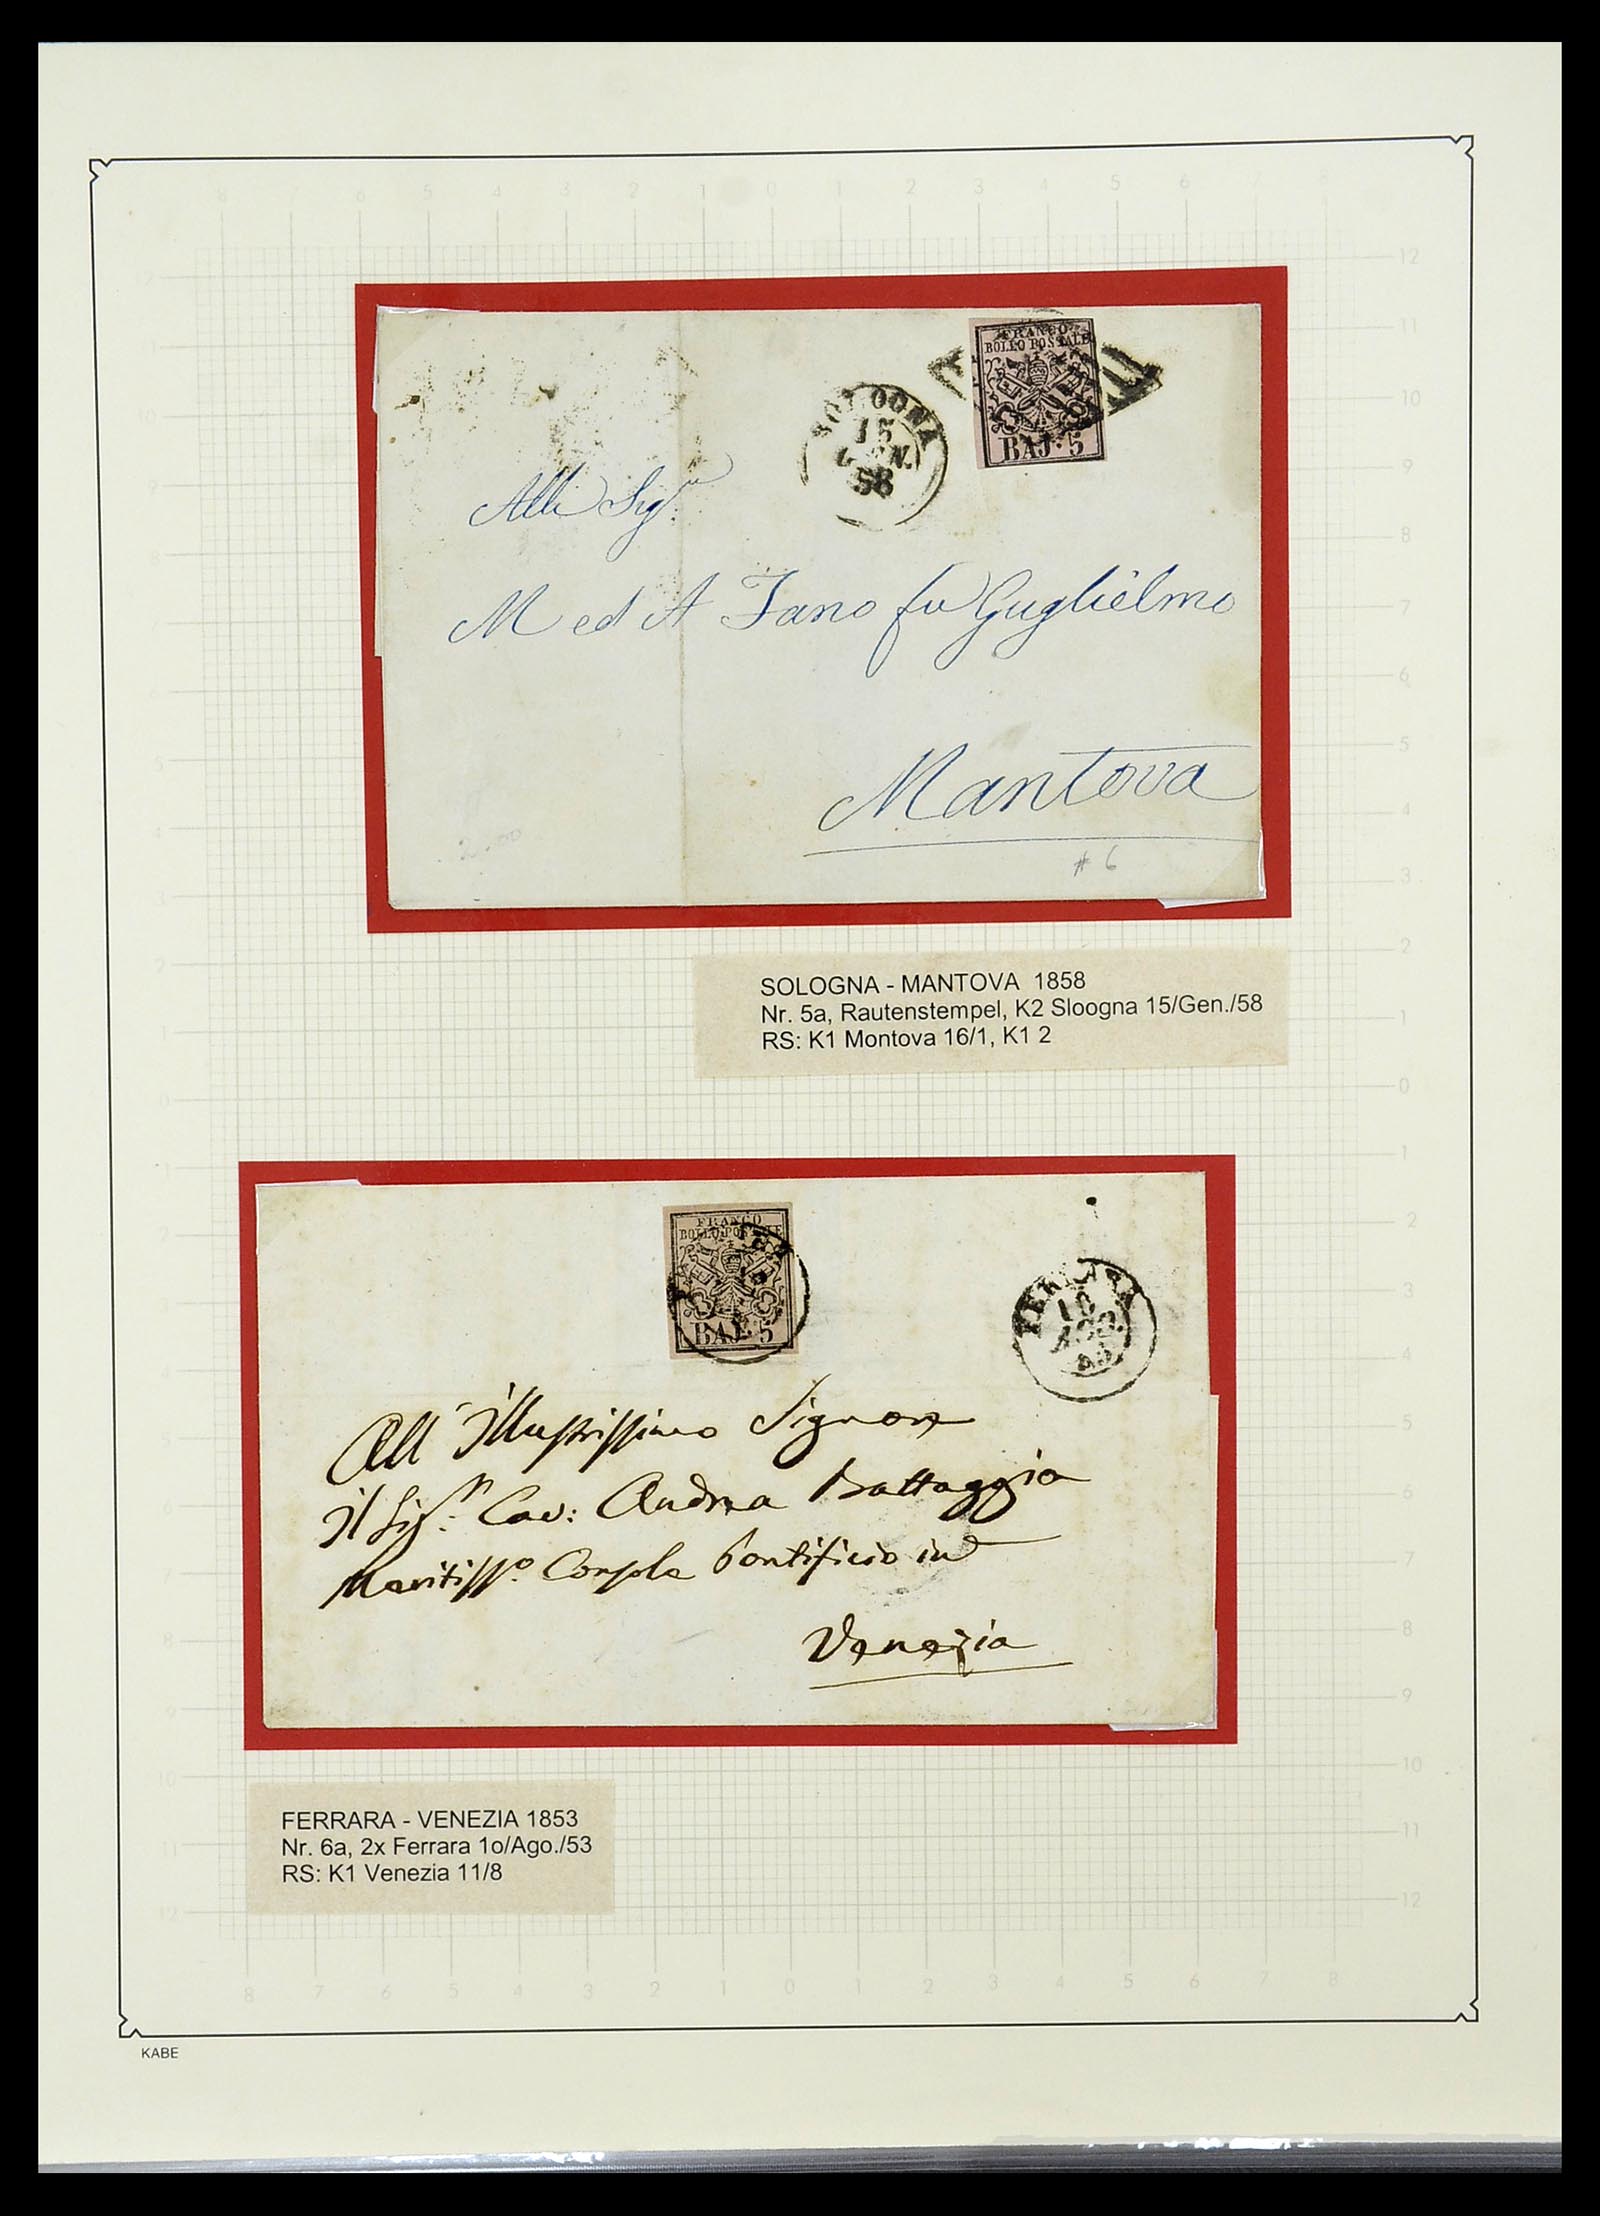 FRANCO
BOLLO POSTALE
BAJ. 5
BOLOGNA
15
GEN.
58
Alli Sig.ri
M ed A Fano fu Guglielmo
Mantova
# 6
SOLOGNA - MANTOVA 1858
Nr. 5a, Rautenstempel, K2 Sloogna 15/Gen./58
RS: K1 Montova 16/1, K1 2
FRANCO
BOLLO POSTALE
BAJ. 5
FERRARA
10
AGO.
53
All'Illustrissimo Signore
Il Sig.r Cav: Andrea Battaggia
Meritiss.o Console Pontificio in
Venezia
FERRARA - VENEZIA 1853
Nr. 6a, 2x Ferrara 1o/Ago./53
RS: K1 Venezia 11/8
KABE